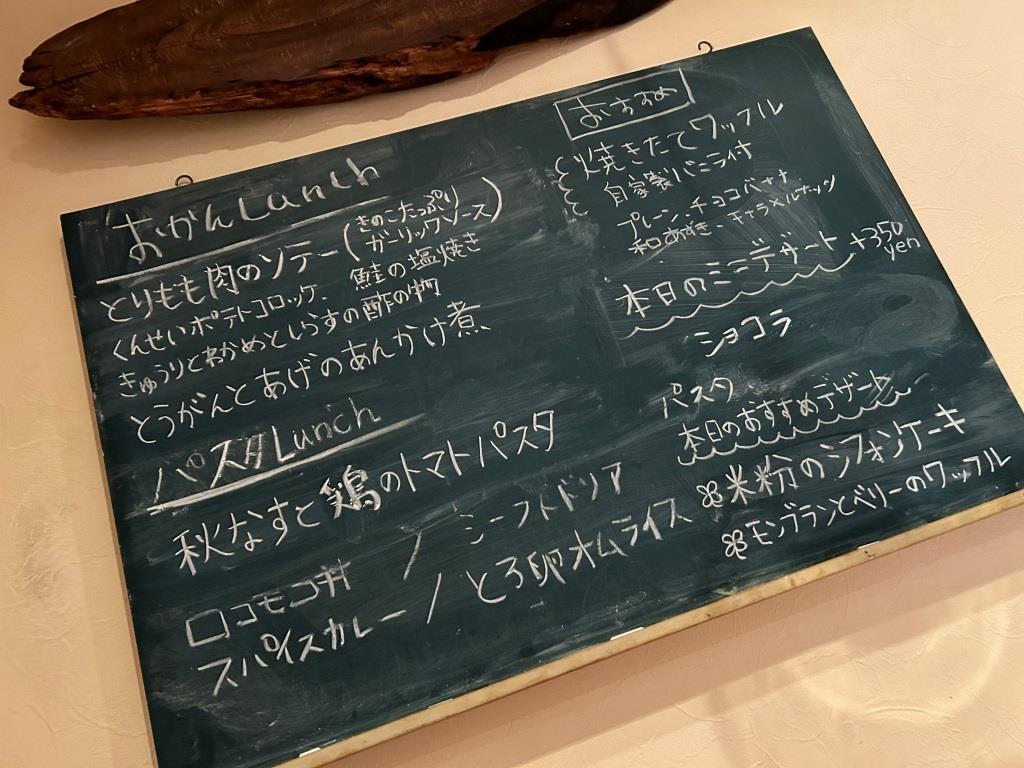 おかんLunch
とりもも肉のソテー(きのこたっぷり
ガーリックソース)
くんせいポテトコロッケ、鮭の塩焼き
きゅうりとわかめとしらすの酢の物
とうがんとあげのあんかけ煮
パスタLunch
秋なすと鶏のトマトパスタ
ロコモコ丼 / シーフドドリア
スパイスカレー / とろ卵オムライス
おすすめ
焼きたてワッフル
自家製バニラアイす
プレーン、チョコバナナ
和あずき、キャラメルナッツ
本日のミニデザート +350
yen
ショコラ
パスタ
本日のおすすめデザート
米粉のシフォンケーキ
モンブランとベリーのワッフル